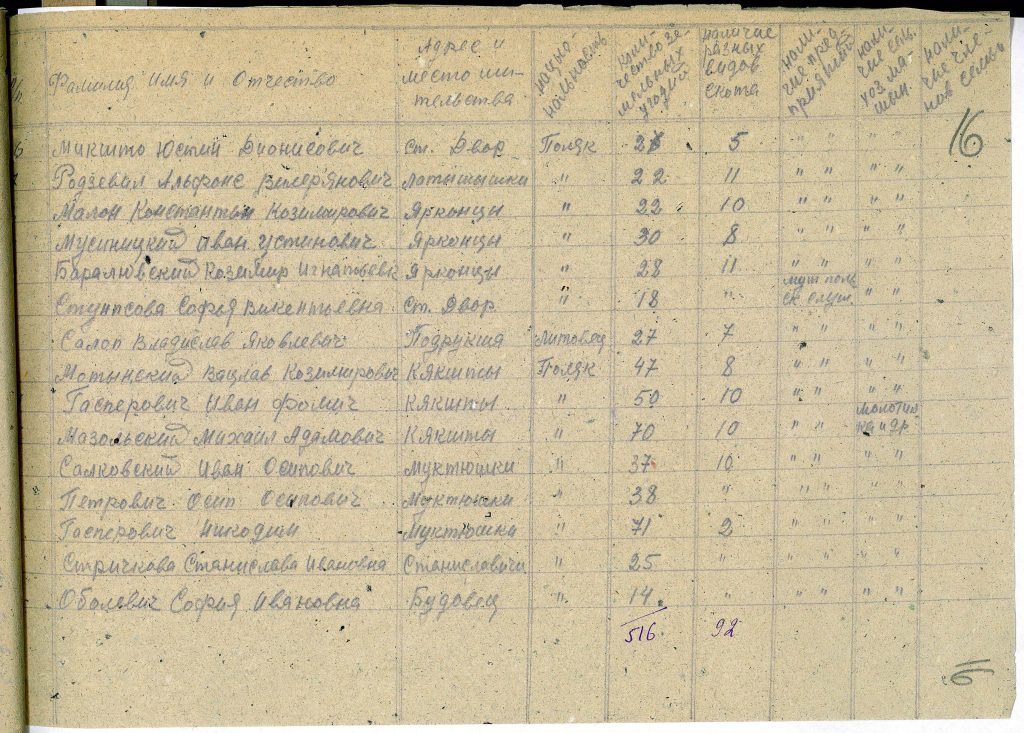 Фамилия Имя и Отчество | Адрес и место жительства | нацио-нальность | коли-чество зе-мельных угодий | наличие разных видов скота | нали-чие пред-приятий | нали-чие сель. хоз ма-шин. | нали-чие чле-нов семьи
16
6 Микшто Юстин Дионисович | ст. Двор | Поляк | 5 | " " | " "
Родзевил Альфонс Вилерянович | Латышышки | " | 22 | 11 | " " | " "
Малон Константын Козимирович | Ярконцы | " | 22 | 10 | " " | " "
Мусиницкий Иван Устинович | Ярконцы | " | 30 | 8 | " " | " "
Баралювский Козимир Игнатьевич | Ярконцы | " | 28 | 11 | " " | " "
Софья Викентьевна | ст. Двор | " | 18 | " | муж поль | " "
Салоп Владислав Яковлевич | Подрукша | Литовец | 27 | 7 | " " | " "
Мотынский Вацлав Козимирович | Кякшты | Поляк | 47 | 8 | " " | " "
Гасперович Иван Фомич | Кякшты | " | 50 | 10 | " " | " "
Мазольский Михаил Адамович | Кякшты | " | 70 | 10 | " " | молотил-ка и др.
Салковский Иван Осипович | Муктюшки | " | 37 | 10 | " " | " "
Петрович Осип Осипович | Муктюшки | " | 38 | " | " " | " "
Гасперович Никодим | Муктюшки | " | 71 | 2 | " " | " "
Стричкова Станислава Ивановна | Станиславичи | " | 25 | " | " " | " "
Оболевич Софья Ивановна | Будовец | " | 14 | " | " " | " "
516 | 92